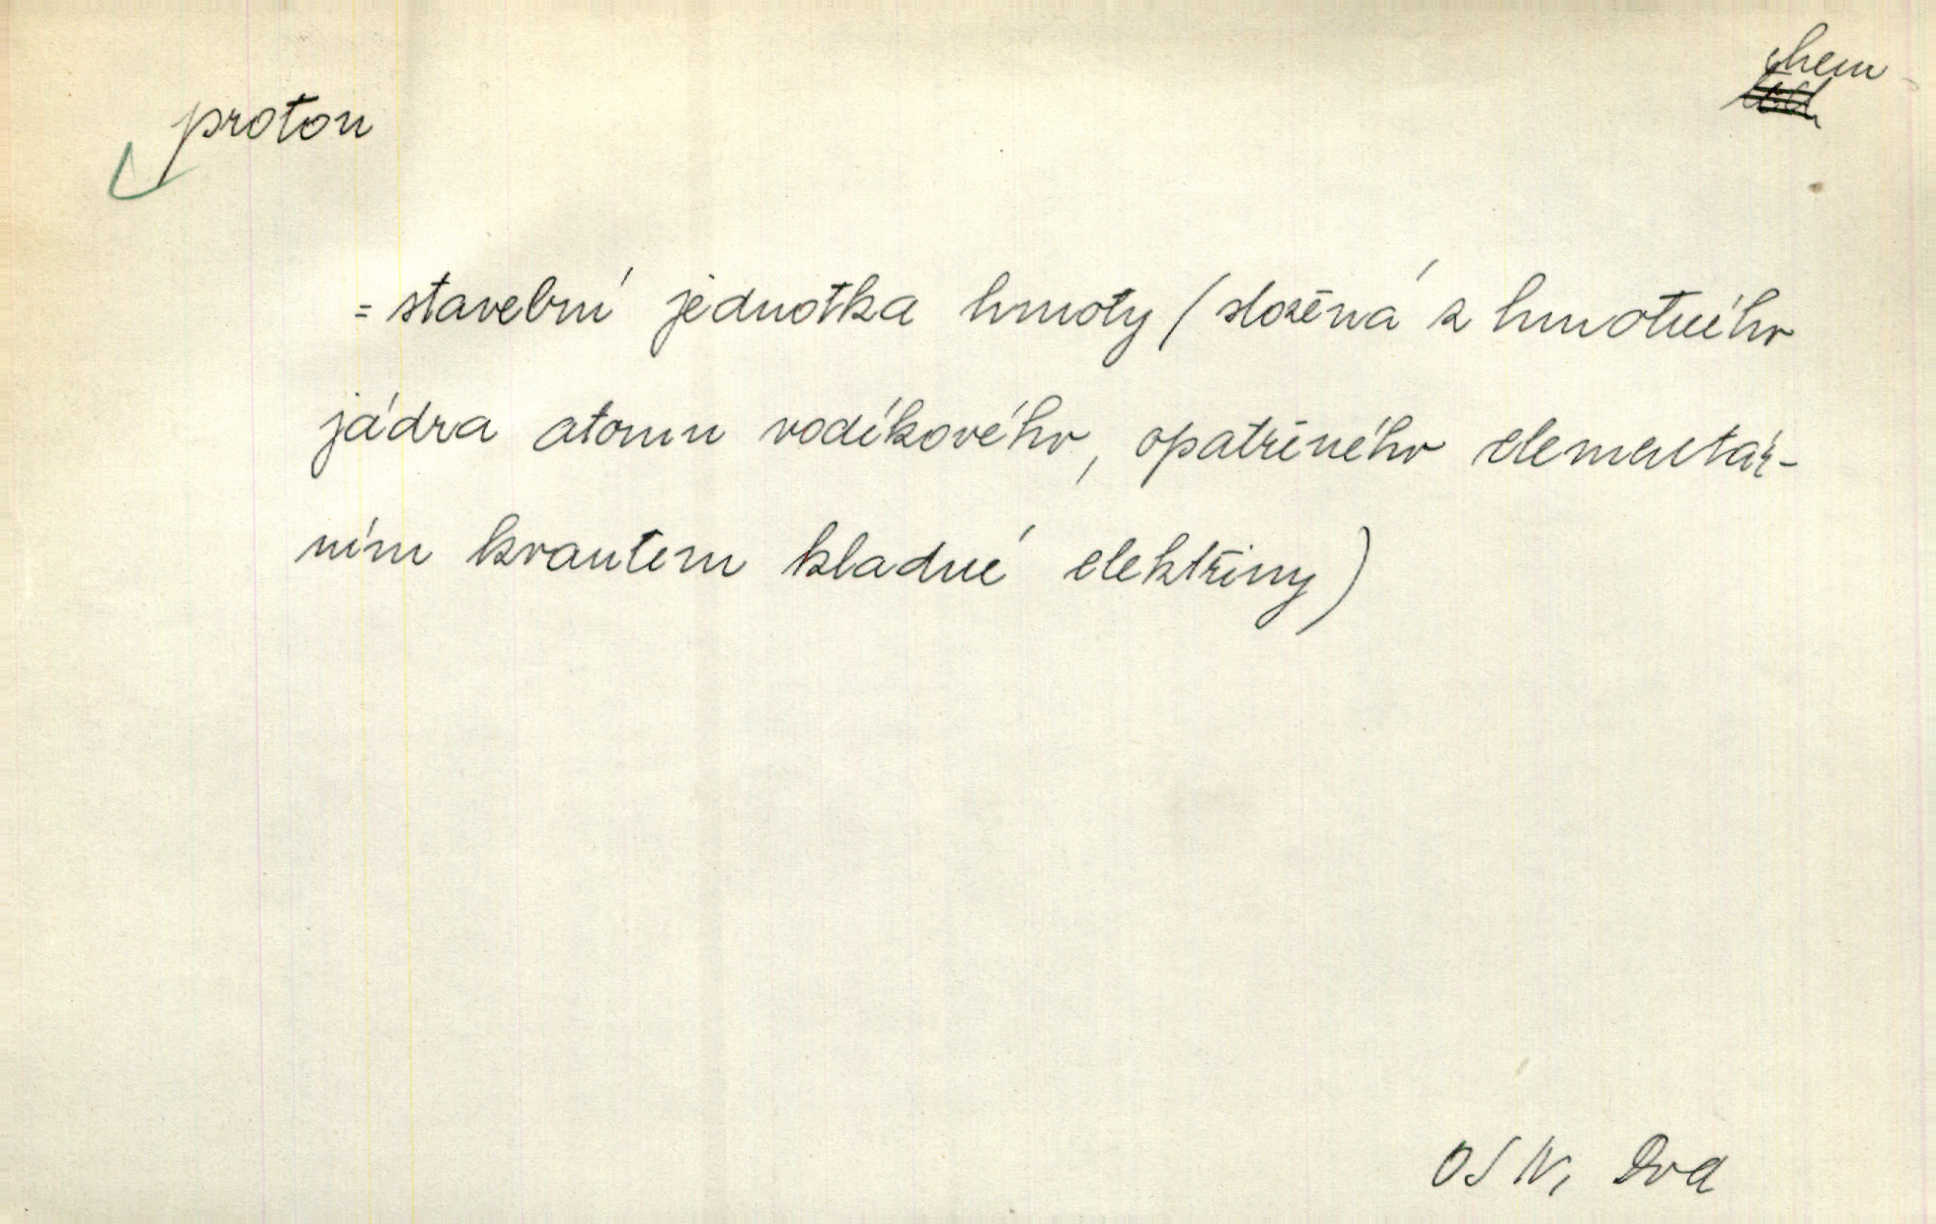 chem
proton
= stavební jednotka hmoty (složená z hmotného
jádra atomu vodíkového, opatřeného elementár-
ním kvantem kladné elektřiny)
OSN,